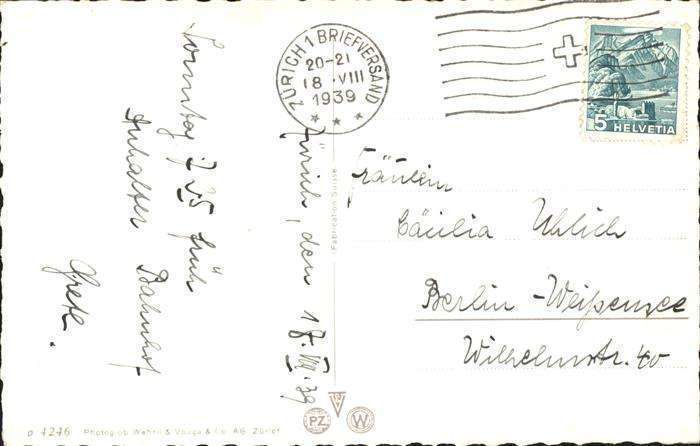 ZÜRICH 1 BRIEFVERSAND
20-21
18 · VIII
1939
5 HELVETIA
Zürich, den 18. VIII. 39
Sonntag 7 35 früh
Anhalter Bahnhof
Grete.
Fräulein
Cäcilia Uhlich
Berlin-Weißensee
Wilhelmstr. 40
Fabrication Suisse
D 4246 Photoglob Wehrli & Vouga & Co. AG. Zürich
PZ
W